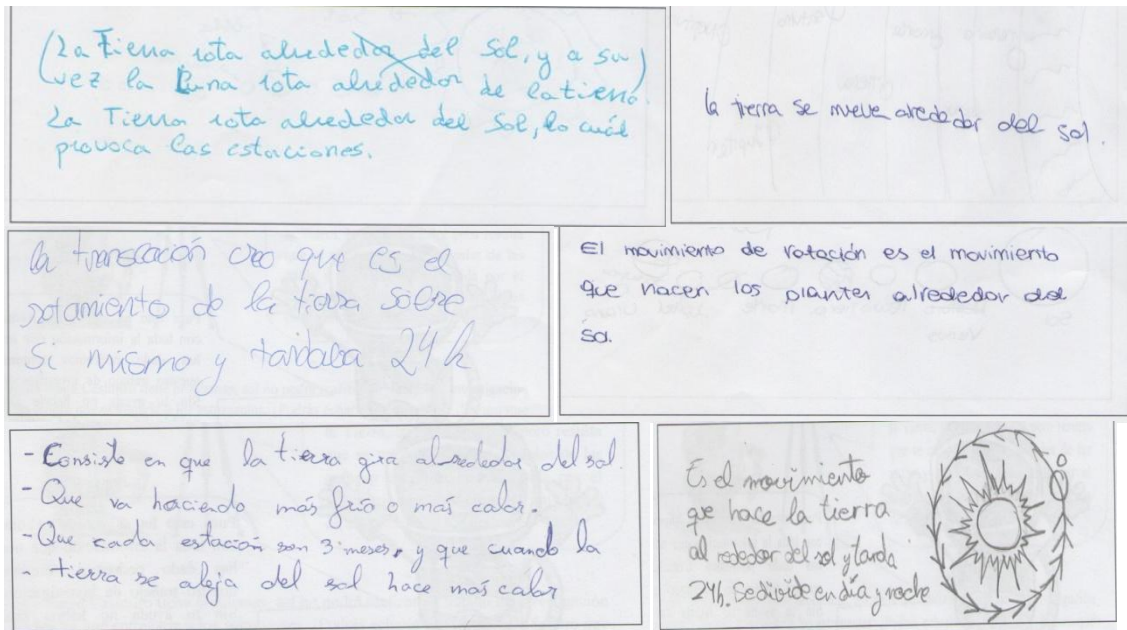 (La Tierra rota alrededor del Sol, y a su
vez la Luna rota alrededor de la tierra.)
La Tierra rota alrededor del Sol, lo cuál
provoca las estaciones.
la tierra se mueve alrededor del sol.
la translación creo que es el
rotamiento de la tierra sobre
si mismo y tardaba 24 h
El movimiento de rotación es el movimiento
que hacen los plantes alrededor del
sol.
- Consiste en que la tierra gira alrededor del sol.
- Que va haciendo más frío o más calor.
- Que cada estación son 3 meses, y que cuando la
- tierra se aleja del sol hace más calor
Es el movimiento
que hace la tierra
al rededor del sol y tarda
24h. Se divide en día y noche